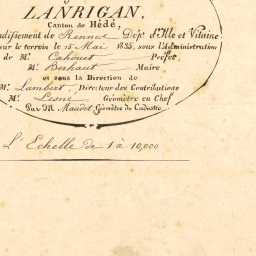 LANRIGAN,
Canton de Hédé,
ndissement de Rennes Dépt. d'Ille et Vilaine
sur le terrein le 15 Mai 1835, sous l'Administration
de Mr. Cahouet Préfet,
Mr. Berhaut Maire
et sous la Direction de
Mr. Lambert, Directeur des Contributions
Mr. Lesne Géomètre en Chef
Par Mr. Maudet Géomètre du Cadastre
L'Echelle de 1 à 10,000